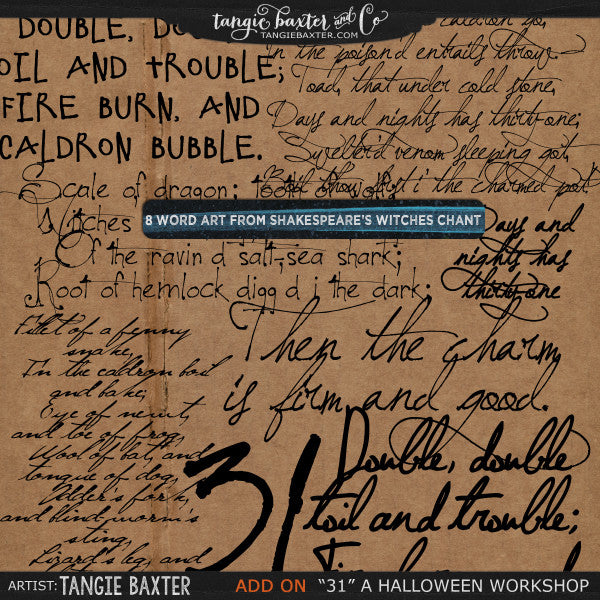 tangie baxter and Co
TANGIEBAXTER.COM
DOUBLE, DO
OIL AND TROUBLE;
FIRE BURN, AND
CALDRON BUBBLE.
caldron go;
In the poison'd entrails throw.
Toad, that under cold stone,
Days and nights has thirty-one;
Swelter'd venom sleeping got,
Boil thou first i the charmed pot.
Scale of dragon; tooth of wolf;
Witches
8 WORD ART FROM SHAKESPEARE'S WITCHES CHANT
Of the ravin d salt-sea shark;
Root of hemlock digg d i the dark;
Days and
nights has
thirty-one
Fillet of a fenny
snake,
In the caldron boil
and bake;
Eye of newt,
and toe of frog,
Wool of bat, and
tongue of dog,
Adder's fork,
and blind-worm's
sting,
Lizard's leg, and
Then the charm
is firm and good.
31
Double, double
toil and trouble;
ARTIST: TANGIE BAXTER
ADD ON "31" A HALLOWEEN WORKSHOP